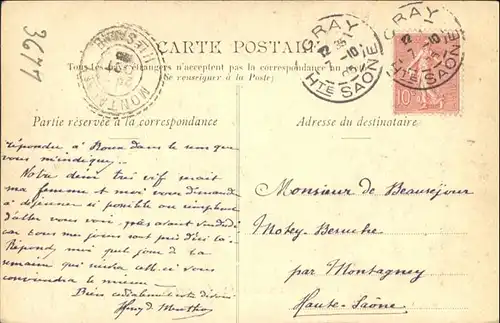 3677
CARTE POSTALE
Tous les pays étrangers n'acceptent pas la correspondance au
se renseigner à la Poste
GRAY
HTE SAÔNE
GRAY
HTE SAÔNE
10
Partie réservée à la correspondance
Adresse du destinataire
répondre à dans le sens que
vous m'indiquez.
Notre désir très vif serait
ma femme et moi vous
à déjeuner si possible ou
d'aller vous voir, avant
car tous mes jours sont pris d'ici là.
Répondez moi quel jour de la
semaine qui suivra celle-ci vous
conviendra le mieux
Bien cordialement votre
Monsieur de Beauséjour
Motey-Besuche
par Montagney
Haute-Saône